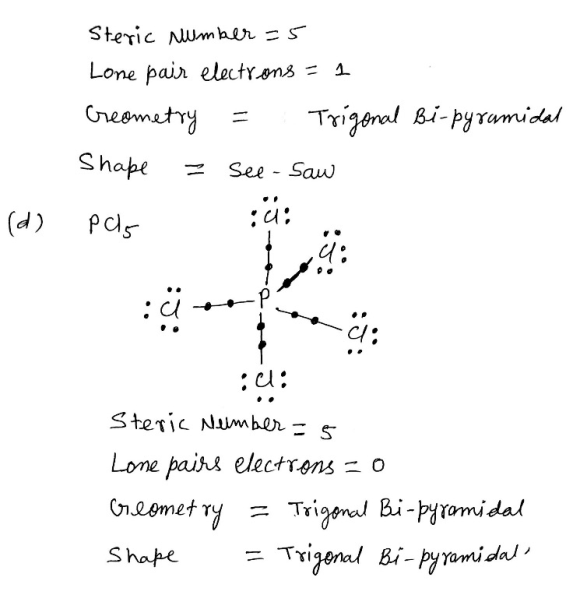 Steric Number = 5
Lone pair electrons = 1
Geometry = Trigonal Bi-pyramidal
Shape = See-Saw
(d) PCl5
:Cl:
Cl:
:Cl P
Cl:
:Cl:
Steric Number = 5
Lone pairs electrons = 0
Geometry = Trigonal Bi-pyramidal
Shape = Trigonal Bi-pyramidal.